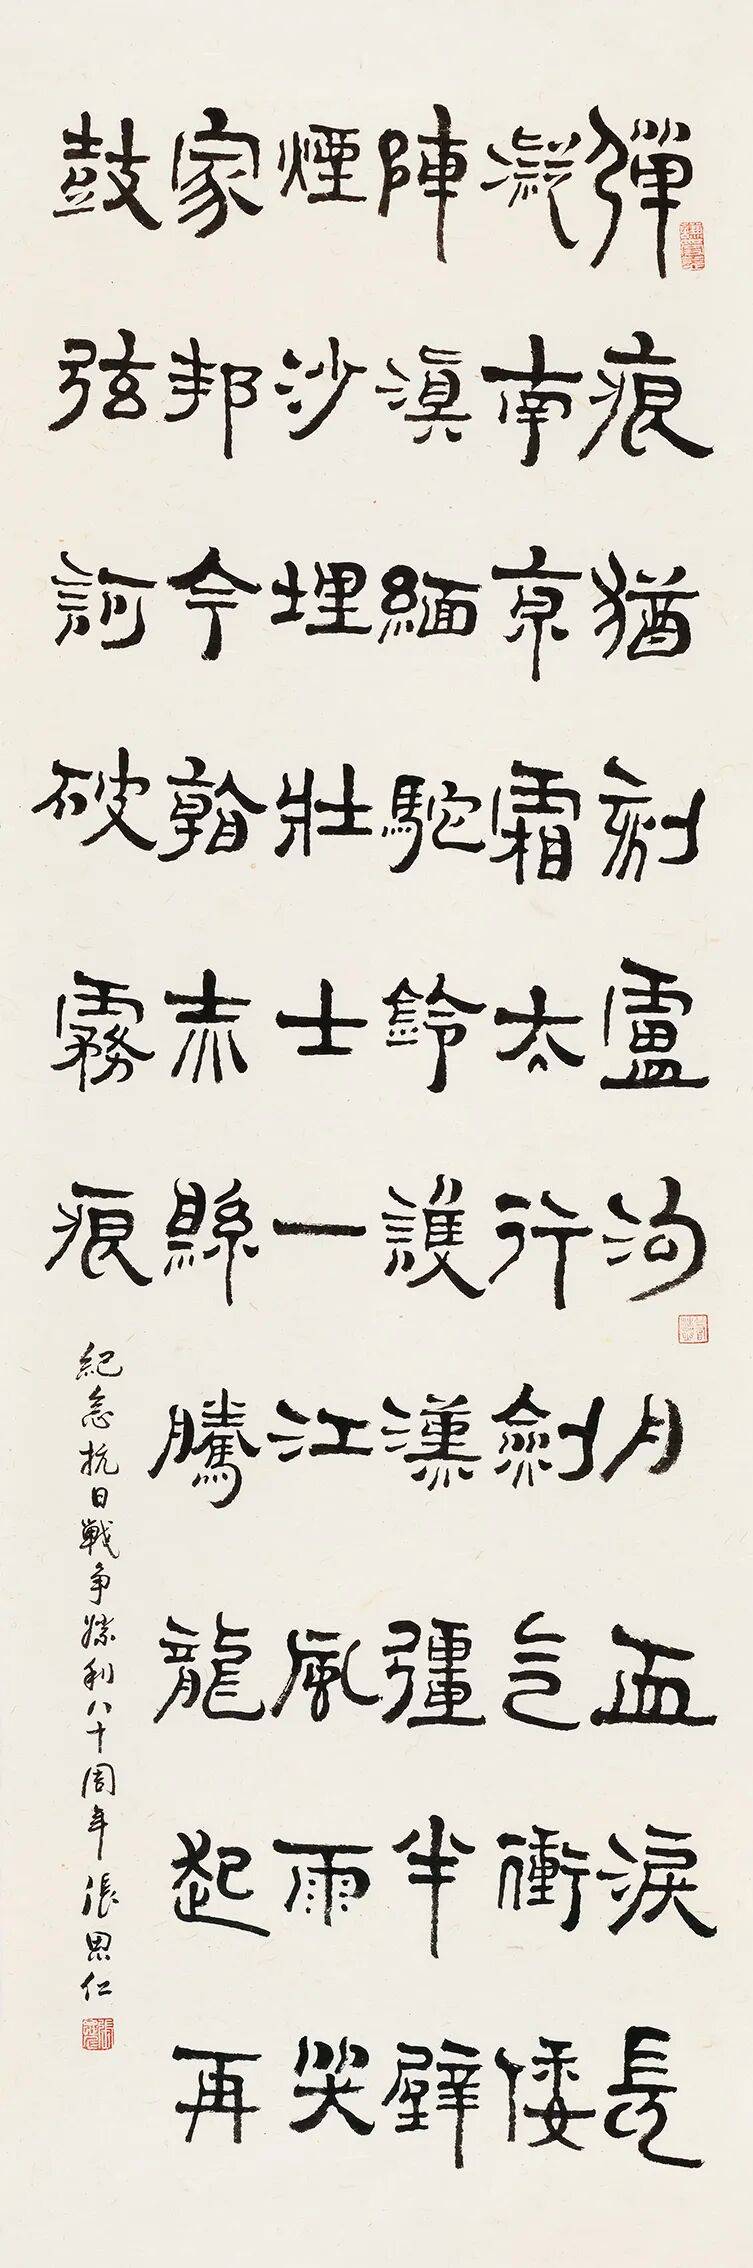 彈痕猶刻盧沟月血淚長
凝南京霜太行劍气衝倭
陣滇緬駝鈴護漢彊半壁
煙沙埋壯士一江風雨哭
家邦今翰赤縣騰龍起再
鼓弦訶破霧痕
紀念抗日戰争勝利八十周年張思仁